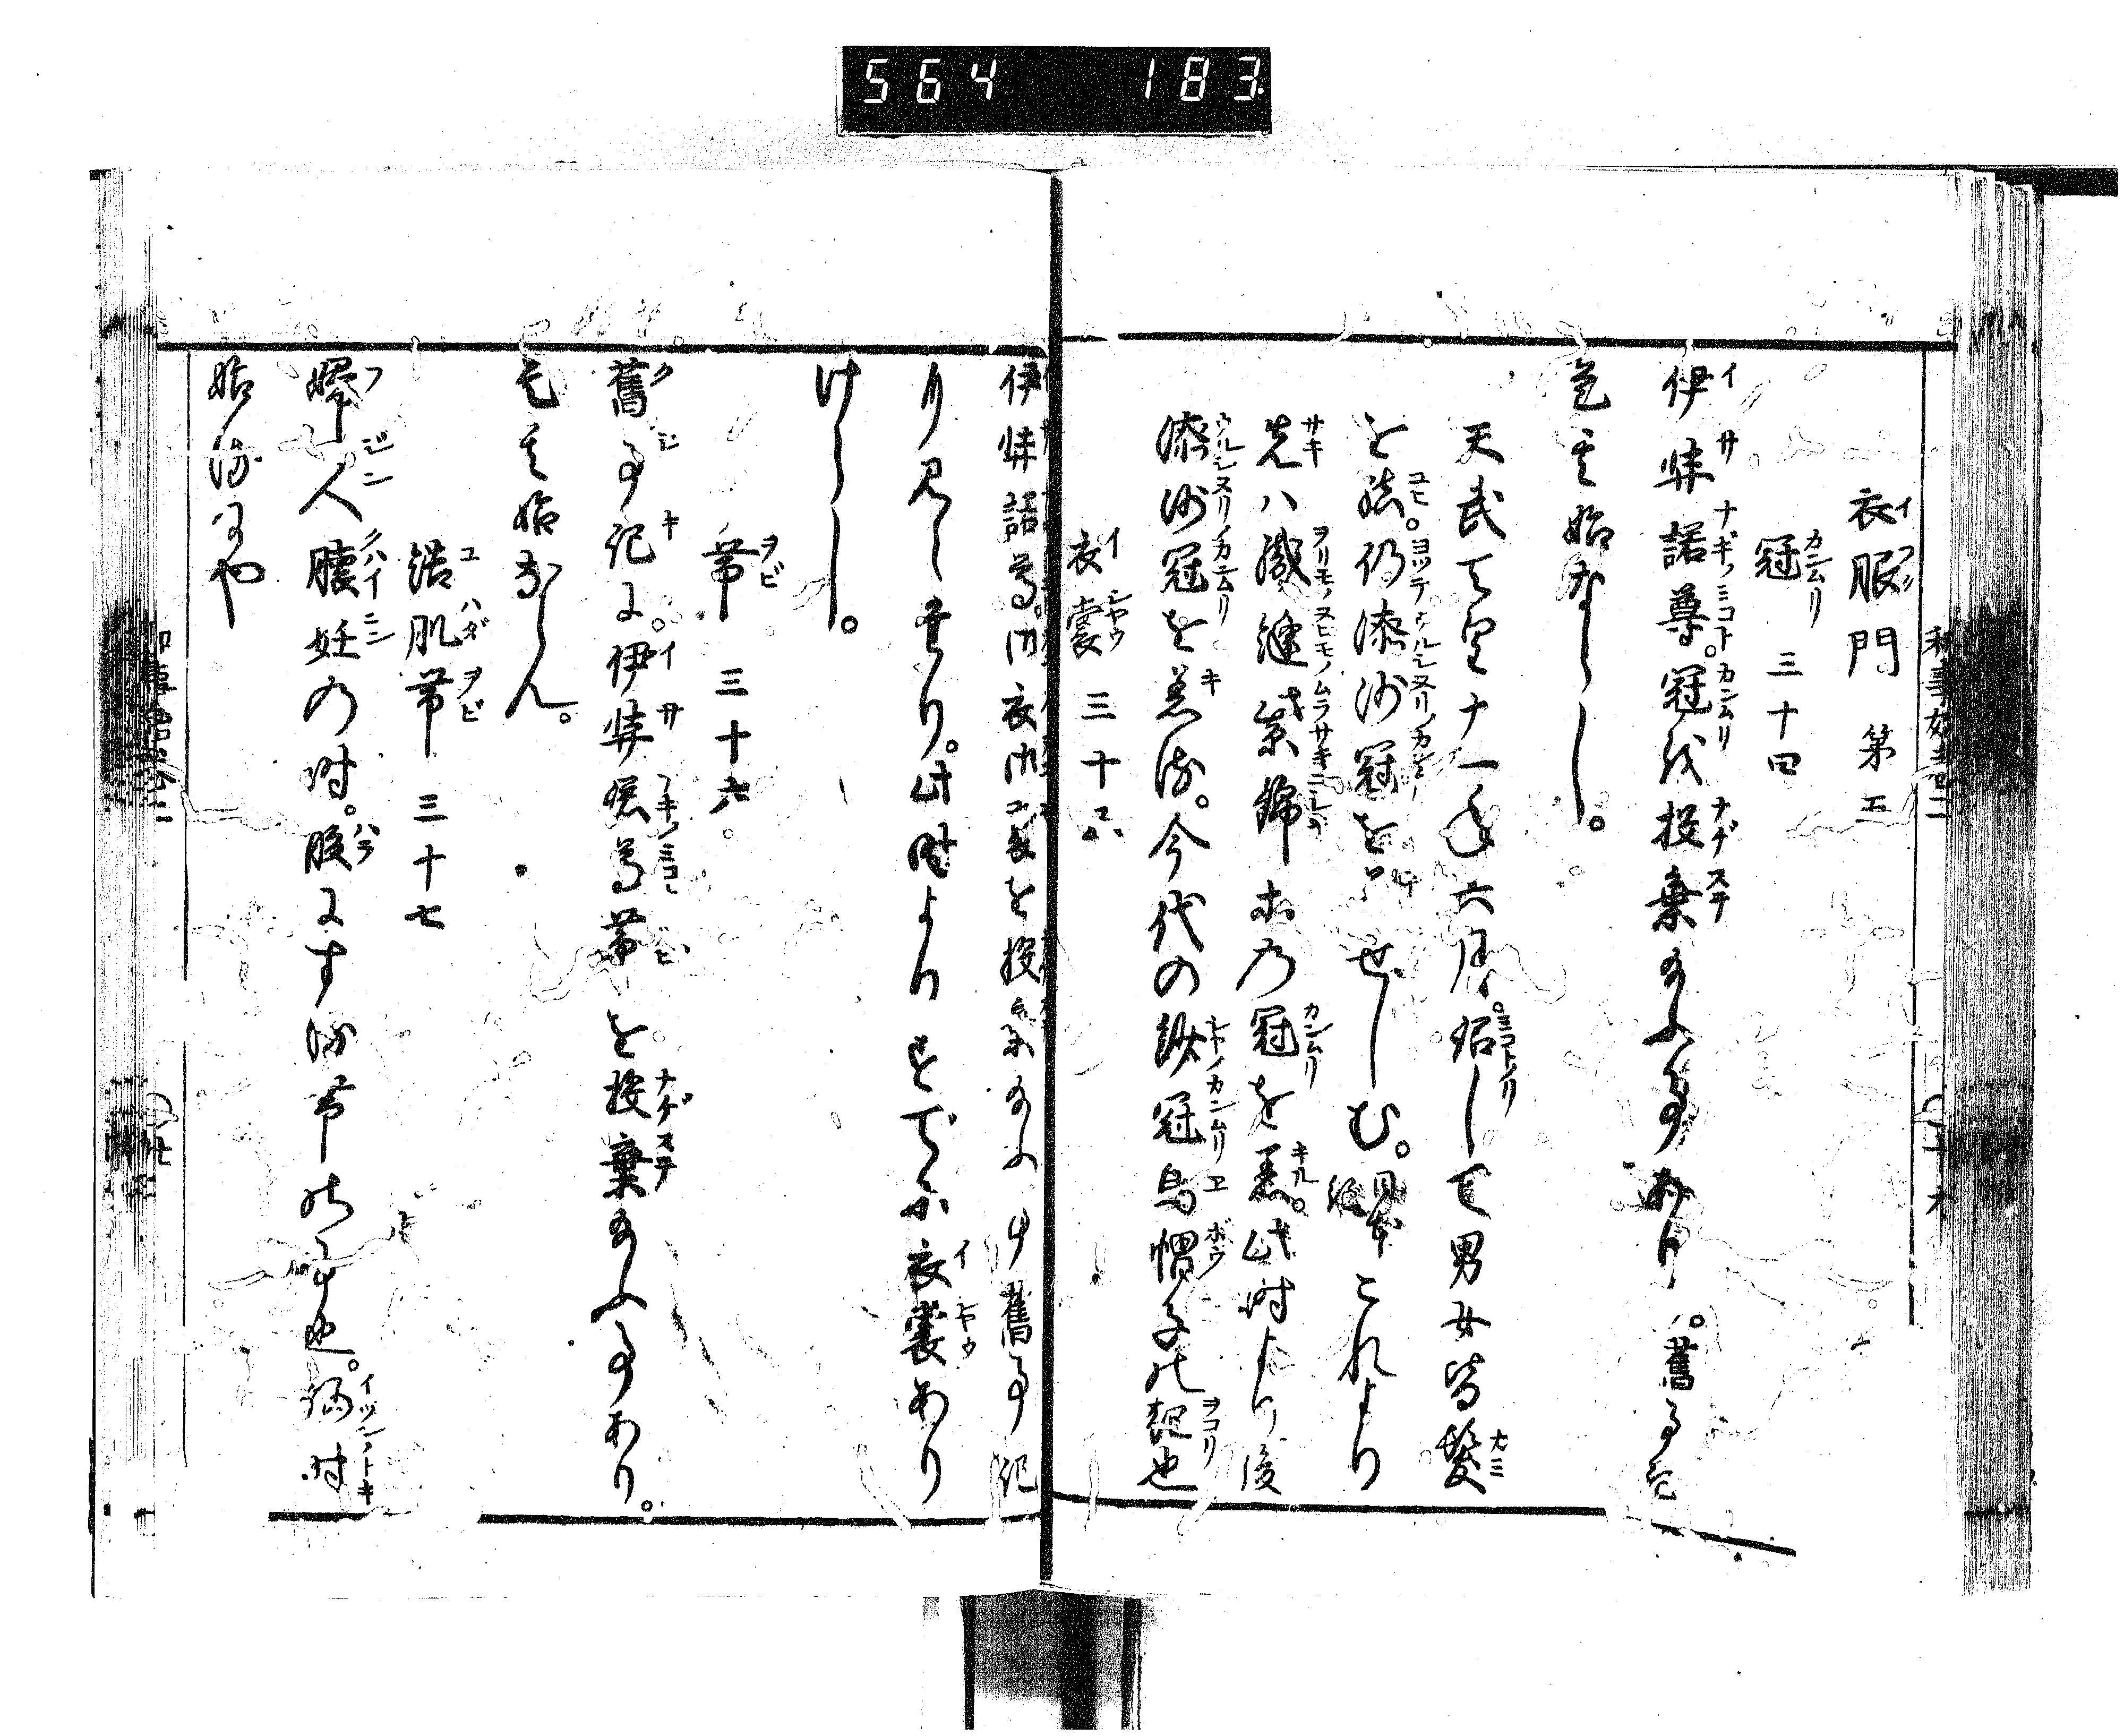 564 183
衣服門 第五
冠 三十四
伊弉諾尊。冠を投棄給ふ事あり。舊事記
是其始なるべし。
天武天皇十一年六月。詔して男女皆髪
を結。仍漆沙冠を せしむ。日本紀 これより
先ハ織縫紫錦等の冠を着。此時より後
漆沙冠を着る。今代の 冠烏帽子の起也
衣裳 三十五
伊弉諾尊。御衣御裳を投棄給ふ事舊事記
り見えたり。此時よりすでに衣裳あり
けらし。
帯 三十六
舊事記に。伊弉諾尊帯を投棄給ふ事あり。
是其始ならん。
結肌帯 三十七
婦人 妊の時。腹にする帯の事也。何時
始るにや